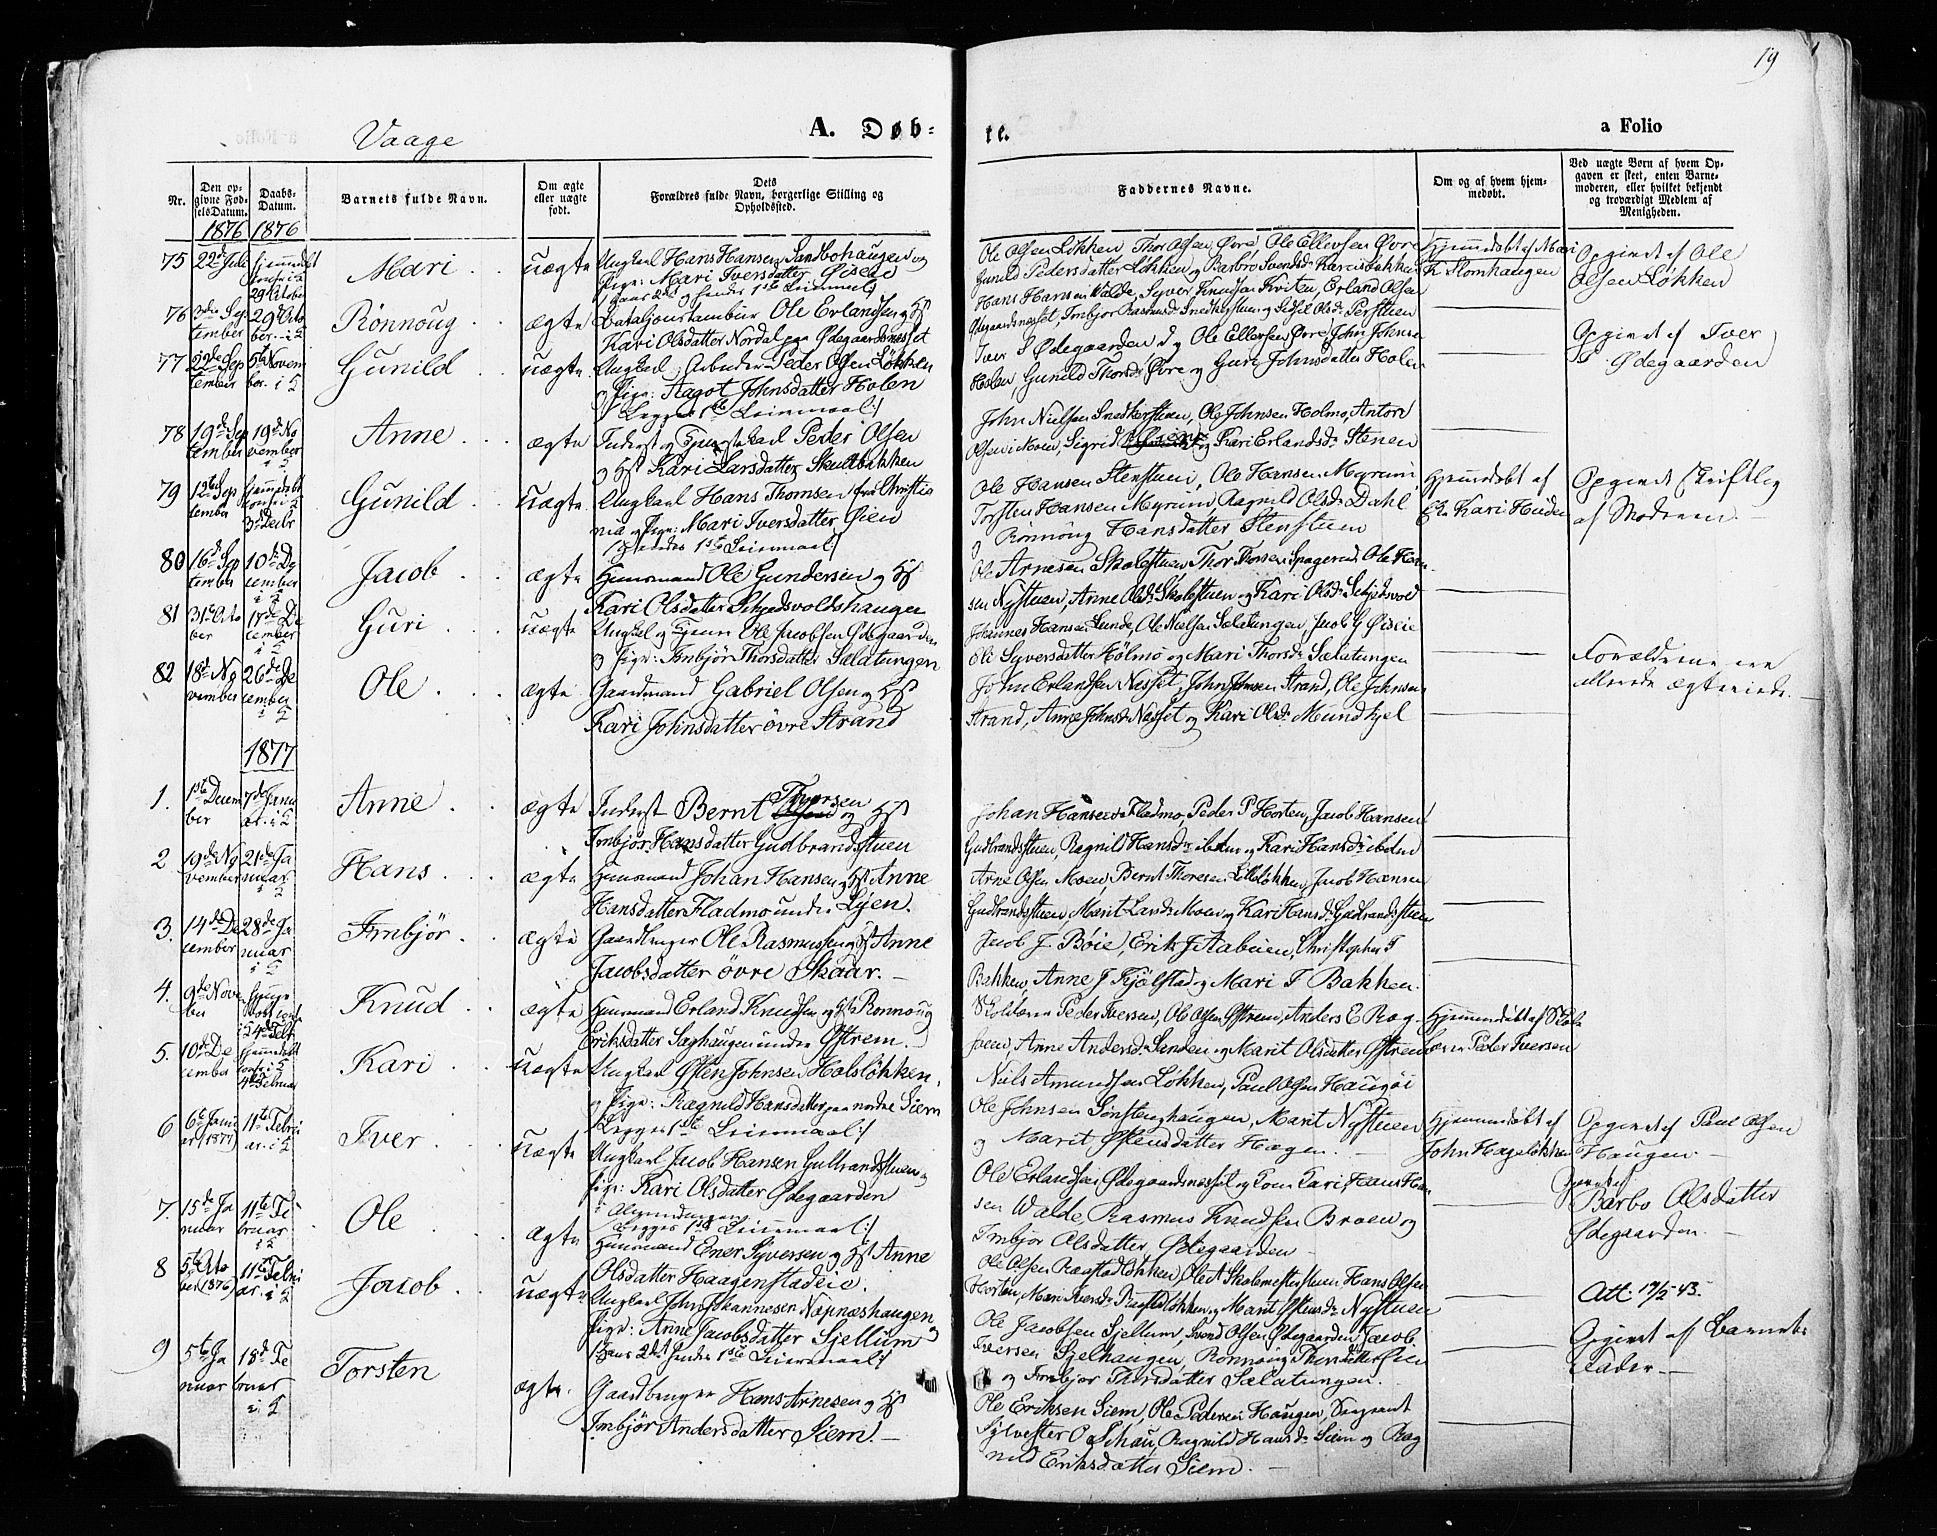 19
Vaage
A. Døb-
te.
a Folio
Nr.
Den op-
givne Fød-
selsDatum.
Daabs-
Datum.
Barnets fulde Navn.
Om ægte
eller uægte
født.
Dets
Forældres fulde Navn, borgerlige Stilling og
Opholdssted.
Faddernes Navne.
Om og af hvem hjem-
medøbt.
Ved uægte Børn af hvem Op-
gaven er skeet, enten Barne-
moderen, eller hvilket bekjendt
og troværdigt Medlem af
Menigheden.
1876 1876
75 22de Juli
29 October
Mari
uægte
Ungkarl Hans Hansen Sandbohaugen og
Pige: Mari Iversdatter Øiene
Ole Olsen Løkken Thor Olsen Øvre Ole Ellevsen Øvre
Gunild Pedersdatter Løkken og Barbro Svendsd.
Hjemmedøbt af Mari
K Slomhaugen
Opgivet af Ole
Olsen Løkken
76 3die Sep-
tember
29de Octo
ber i K
Rønnoug
ægte
Bataljonstambur Ole Erlandsen og Hst
Kari Olsdatter Nordal paa Ødegaardsnesset
Hans Hansen Valde, Syver Knudsen Kviten, Erland Olsen
Ødegaardsnesset, Imbjør Rasmusd. Snedkerstuen og Sidsel Olsd.
77 22de Sep
tember
5te Novem
ber. i K
Gunild
uægte
Ungkarl og Arbeider Peder Olsen Løkken
og Pige: Aagot Johnsdatter Holen
Begges 1ste Leiermaal
Iver S Ødegaarden d.y. Ole Ellevsen Øvre John Johnsen
Holen, Gunild Thorsd. Øvre og Guri Johnsdatter Holen
Opgivet af Iver
S Ødegaarden
78 19de Sep
tember
19de No
vember
i K
Anne
ægte
Inderst og Peder Olsen
og Hst Kari Larsdatter Skultbakken
John Nielsen Snedkerstuen, Ole Johnsen Holmo, Anton
Olsen Moen, Sigrid og Kari Erlandsd. Stenen
79 12te Sep
tember
3die Decbr
Gunild
uægte
Ungkarl Hans Thomsen fra Christia
nia og Pige: Mari Iversdatter Øien
Begges 1ste Leiermaal
Ole Hansen Stenstuen, Ole Hansen Myrum,
Torsten Hansen Myrum, Ragnild Olsd. Dahl
og Rønnoug Hansdatter Stenstuen
Hjemmedøbt af
Kari Heiden
Opgivet skriftlig
af Moderen.
80 16de Sep
tember
10de De
cember
i K
Jacob
ægte
Huusmand Ole Gundersen og Hst
Kari Olsdatter Skjedsvoldshaugen
Ole Arnesen Skolestuen Thor Thorsen Spagerud Ole Han
sen Nystuen, Anne Olsd. Skolestuen og Kari Olsd. Skjedsvold
81 31te Octo
ber
17de De
cember
i K
Guri
uægte
Ungkarl og Tjener Ole Jacobsen Ødegaarden
og Pige: Imbjør Thorsdatter Sælatungen
Johannes Hansen Lunde, Ole Nielsen Sælatungen, Jacob G Øiseie
Syversdatter Holmo og Mari Thorsd. Sælatungen
Forældrene ere
allerede ægteviede.
82 18de No
vember
26de De
cember
i K
Ole
ægte
Gaardmand Gabriel Olsen og Hst
Kari Johnsdatter øvre Strand
John Erlandsen Næsset, John Johnsen Strand, Ole Johnsen
Strand, Anne Johnsd. Næsset og Kari Olsd. Mundhjel
1877
1. 1ste Decem
ber
7de Janu
ar. i K
Anne
ægte
Inderst Bernt Thorsen og Hst
Imbjør Hansdatter Gudbrandsstuen
Johan Hansen Fladmo, Peder P Horten, Jacob Hansen
Gudbrandsstuen, Ragnild Hansd. ibidem og Kari Hansd. ibidem
2 19de No
vember
21de Ja
nuar
i K
Hans
ægte
Huusmand Johan Hansen og Hst Anne
Hansdatter Fladmo under Lyen.
Arne Olsen Moen, Bernt Thoresen Lilleløkken, Jacob Hansen
Gudbrandsstuen, Marit Larsd. Moen og Kari Hansd. Gudbrandsstuen
3. 14de De
cember
28de Ja
nuar
i K
Imbjør
ægte
Gaardbruger Ole Rasmussen og Hst Anne
Jacobsdatter øvre Skaar.
Jacob J. Bøie, Erik J Aabuen, Christopher T
Bakken, Anne J Kjølstad og Mari T Bakken.
4. 9de Novem
ber
4de Febr
Knud
ægte
Huusmand Erland Knudsen og Hst Rønnoug
Eriksdatter Saghaugen under Øftrem.
Skolelærer Peder Iversen, Ole Olsen Øftrem, Anders E Rog-
Anne Andersd. Sanden og Marit Olsdatter Øftrem
Hjemmedøbt af Skole
lærer Peder Iversen
5. 10de De
cember
4de Februar
Kari
uægte
Ungkarl Østen Johnsen Holsløkken,
og Pige: Ragnild Hansdatter paa nordre Siem
Begges 1ste Leiermaal
Niels Amundsen Løkken, Paul Olsen Haugøi
Ole Johnsen Sønstenghaugen, Marit Nystuen
og Marit Østensdatter Haagen.
Hjemmedøbt af
John Hageløkken
Opgivet af Paul Olsen
Haugen.
6 6te Janu
ar (1877)
11te Febru
ar. i K
Iver
uægte
Ungkarl Jacob Hansen Gulbrandsstuen og
Pige: Kari Olsdatter Ødegaarden
Begges 1ste Leiermaal
Ole Erlandsen Ødegaardsnesset og Kone Kari, Hans Han
sen Valde, Rasmus Knudsen Broen og
Imbjør Olsdatter Ødegaarden
Opgivet af
Barbo Olsdatter
Ødegaarden.
7. 15de Ja
nuar
11te Fe
bruar
i K
Ole
ægte
Huusmand Ener Syversen og Hst Anne
Olsdatter Haagenstadeie.
Ole Olsen Raastadløkken, Ole A Skolemesterstuen Hans Olsen
Horten, Mari Iversd. Raastadløkken og Marit Østensd. Nystuen
Att. 17/2 43.
8 5te Octo
ber (1876)
11te Febru
ar. i K
Jacob
uægte
Ungkarl John Johannesen Næpnæshaugen
Pige: Anne Jacobsdatter Sjellum og
Hans 2det Hendes 1ste Leiermaal
Ole Jacobsen Sjellum, Svend Olsen Ødegaarden, Jacob
Iversen Sjelhaugen, Rønnoug Thorsdatter Øien
og Imbjør Thorsdatter Sælatungen.
Opgivet af Barnets
Fader
9 5te Ja
nuar
18de Fe
bruar
i K
Torsten
ægte.
Gaardbruger Hans Arnesen og Hst
Imbjør Andersdatter Siem.
Ole Eriksen Siem, Ole Pedersen Haugen, Sergeant
Sylvester O Schau, Ragnild Hansd. Siem og Rag
nild Eriksdatter Siem.